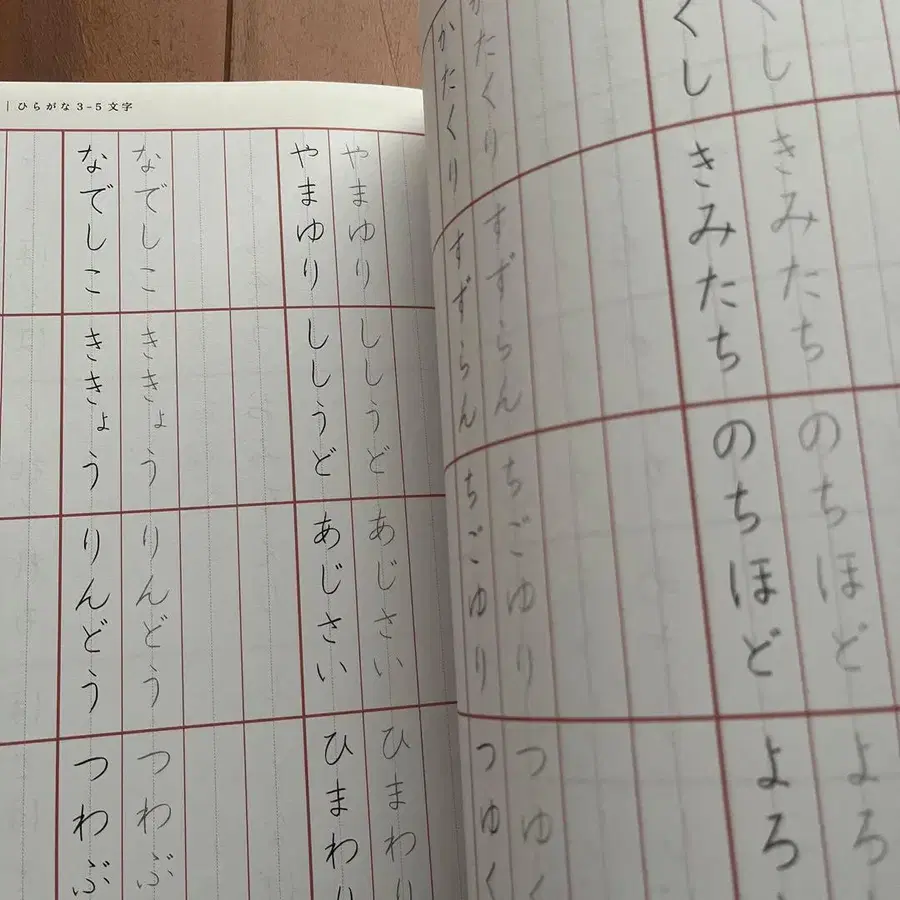 くし
きみたち
のちほど
よろ
くし
きみたち
のちほど
よろ
かたくり
すずらん
ちごゆり
つゆく
かたくり
すずらん
ちごゆり
つゆく
ひらがな3-5文字
やまゆり
ししうど
あじさい
ひまわり
やまゆり
ししうど
あじさい
ひまわり
なでしこ
ききょう
りんどう
つわぶ
なでしこ
ききょう
りんどう
つわぶ